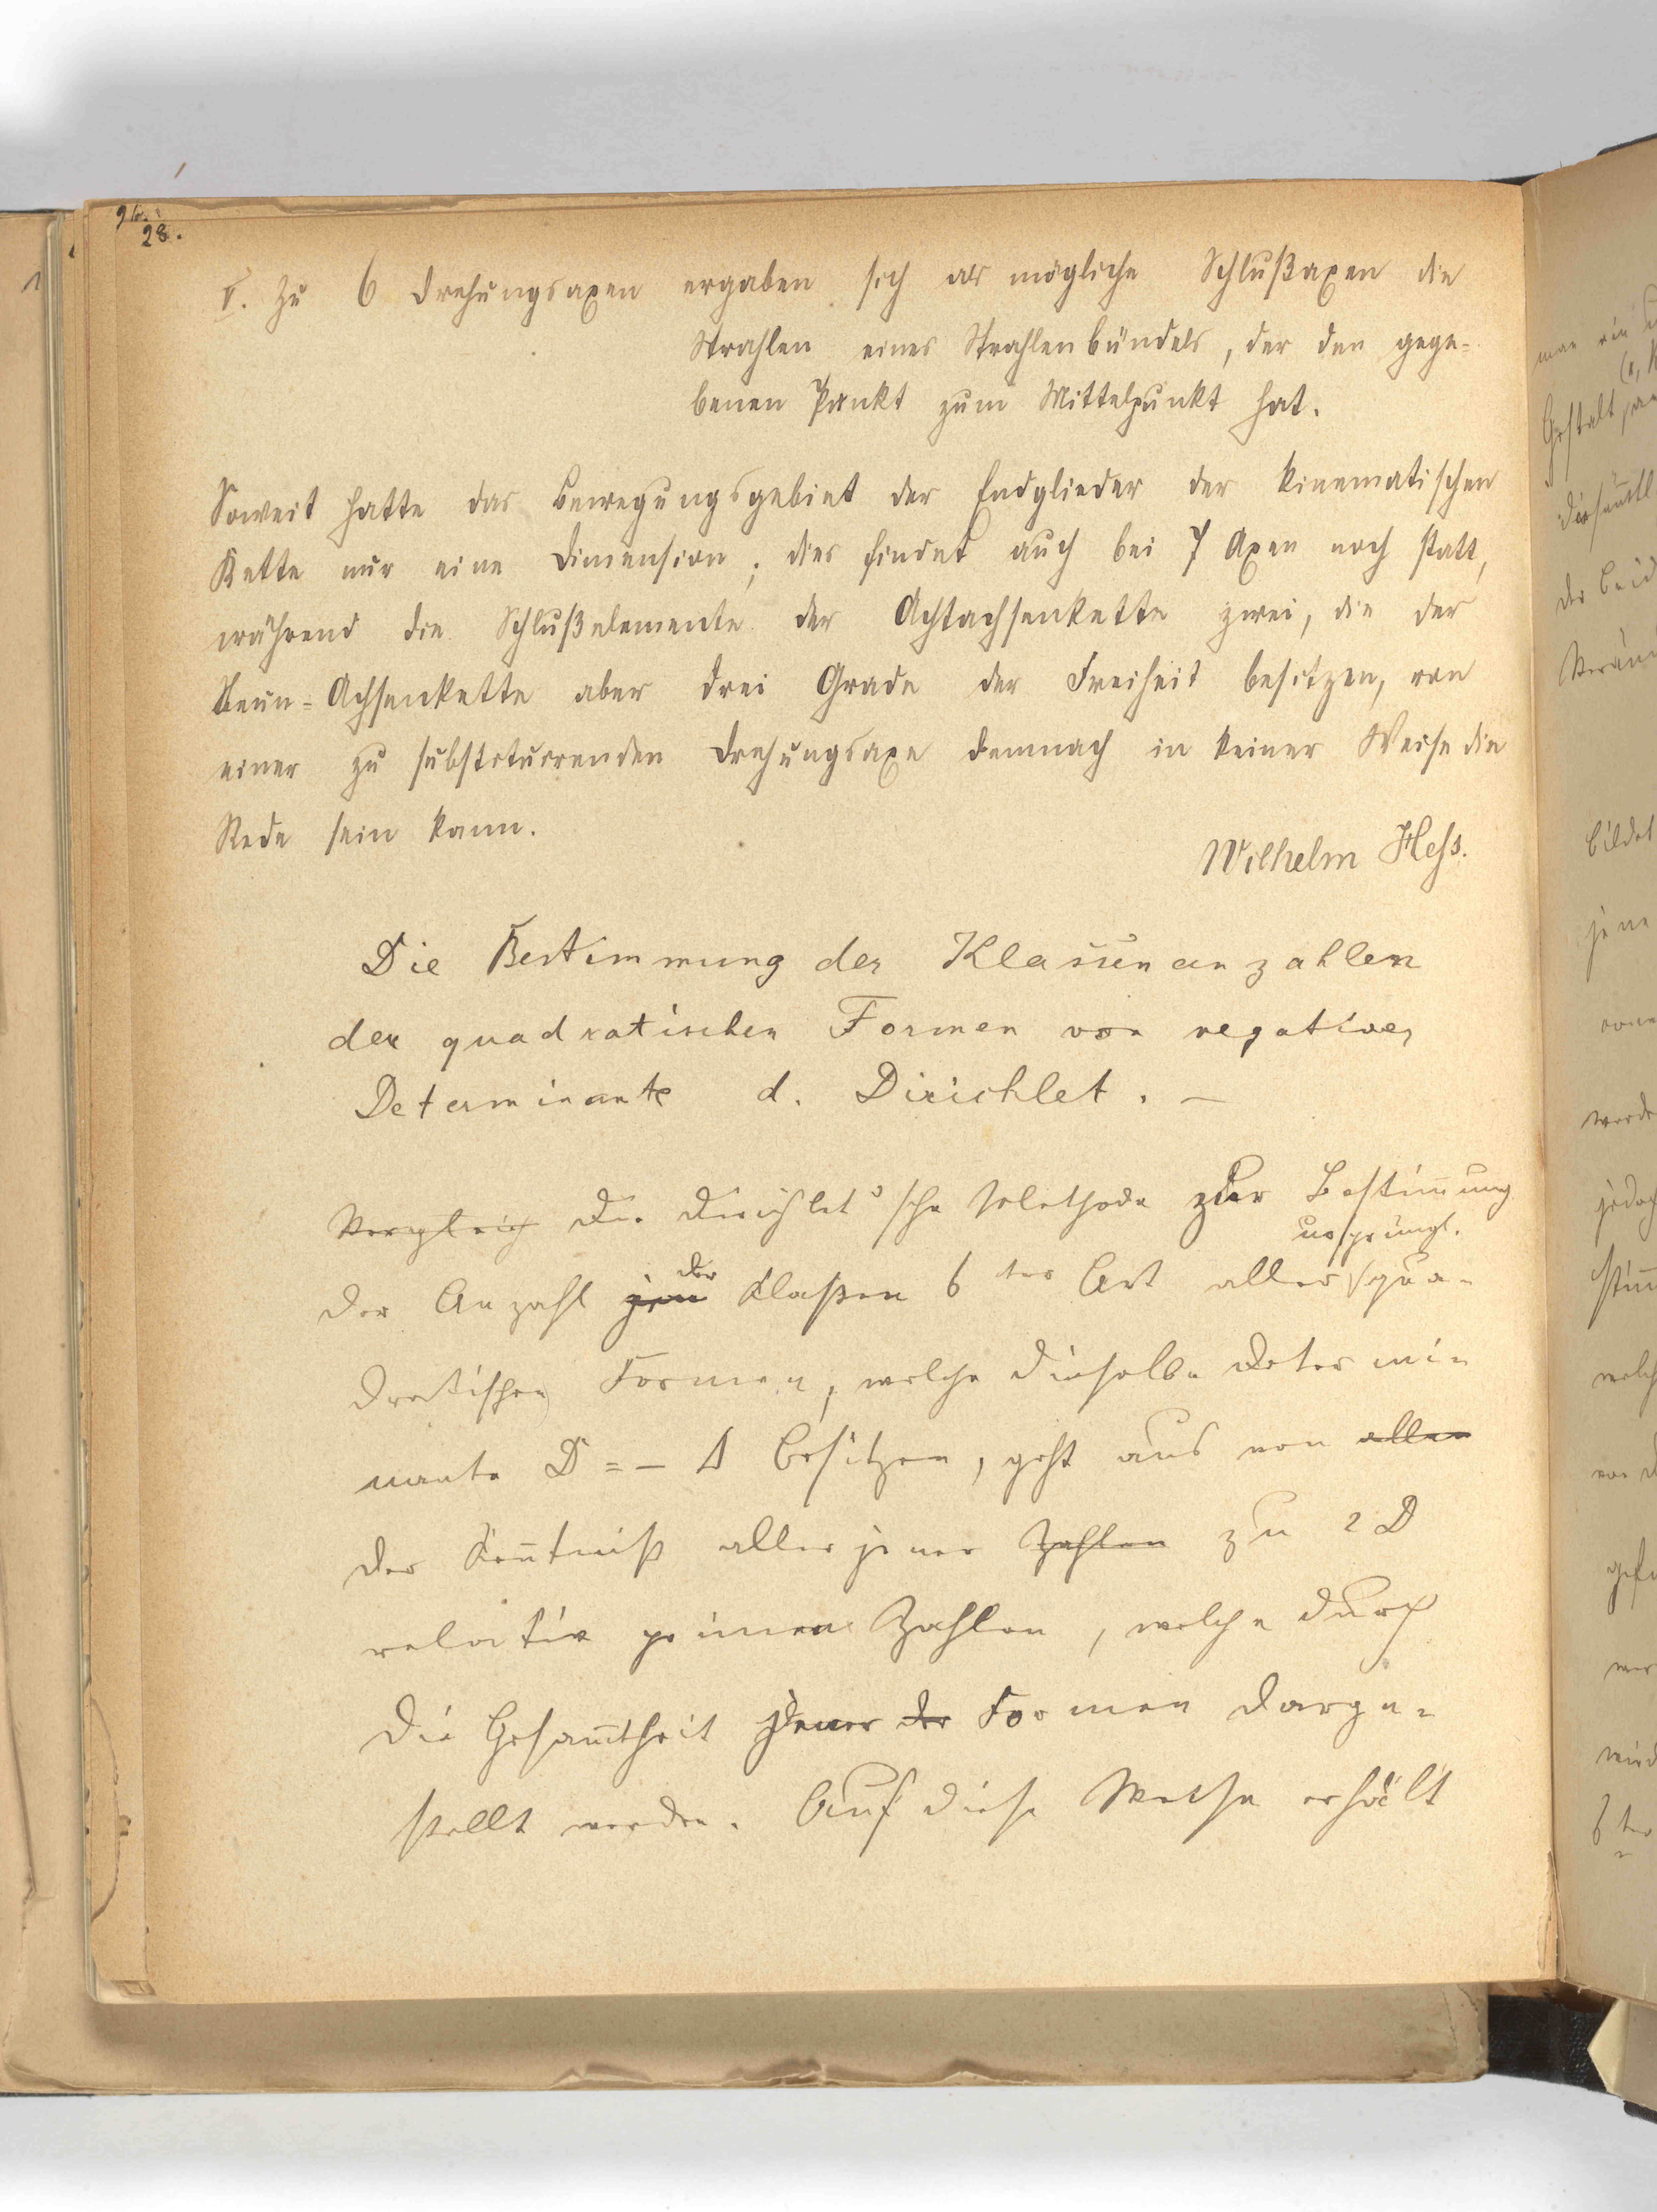 28.
V. Zu 6 Drehungsaxen ergaben sich als mögliche Schlußaxen die
Strahlen eines Strahlenbündels, der den gege-
benen Punkt zum Mittelpunkt hat.
Soweit hatte das Bewegungsgebiet der Endglieder der kinematischen
Kette nur eine Dimension; dies findet auch bei 7 Axen noch statt,
während die Schlußelemente der Achtachsenkette zwei, die der
Neun-Achsenkette aber drei Grade der Freiheit besitzen, von
einer zu substituirenden Drehungsaxe demnach in keiner Weise die
Rede sein kann.
Wilhelm Hess.
Die Bestimmung der Klassenanzahlen
der quadratischen Formen von negativer
Determinante d. Dirichlet. —
Vergleich Die Dirichlet'sche Methode zur Bestim̄ung
ursprüngl.
der Anzahl der Klaßen 6 ter Art aller qua-
dratischen Formen, welche dieselbe Determi-
nante D = - Δ besitzen, geht aus von allen
der Ken̄tniß aller jener Zahlen zu 2D
relativ primen Zahlen, welche durch
die Gesam̄theit jener der Formen darge-
stellt werden. Auf diese Weise erhält
man ein
Gestalt
der beid
bildet
jene
werde
jedoch
welch
6 ter